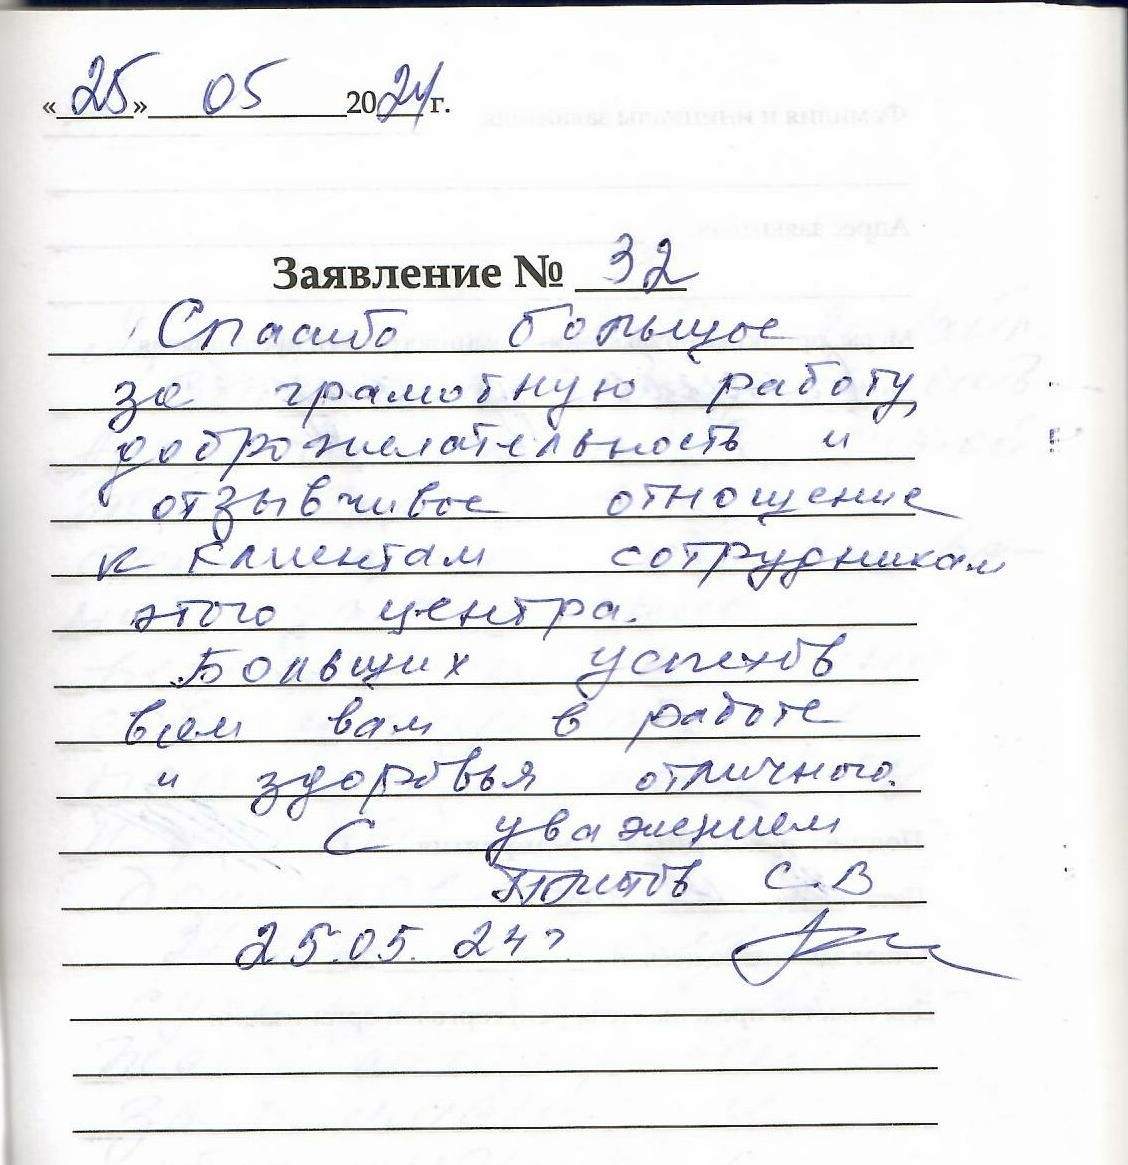 «25» 05 2024 г.
Заявление № 32
Спасибо большое
за грамотную работу,
доброжелательность и
отзывчивое отношение
к клиентам сотрудникам
этого центра.
Больших успехов
всем вам в работе
и здоровья отличного.
С уважением
С.В
25.05.24г.